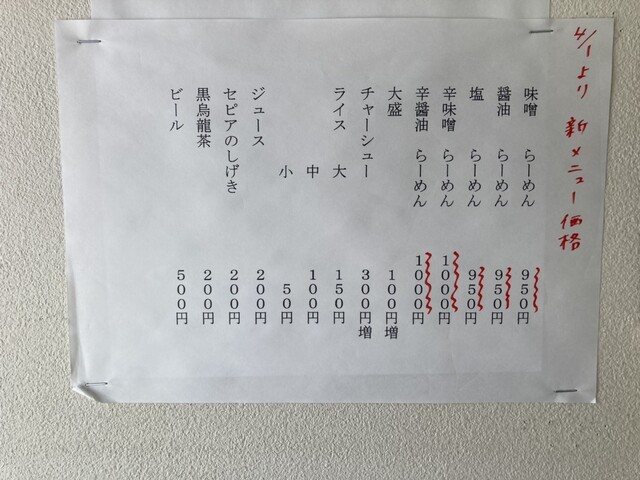 4/1より 新メニュー価格
味噌 らーめん 950円
醤油 らーめん 950円
塩 らーめん 950円
辛味噌 らーめん 1000円
辛醤油 らーめん 1000円
大盛 100円増
チャーシュー 300円増
ライス 大 150円
中 100円
小 50円
ジュース 200円
セピアのしげき 200円
黒烏龍茶 200円
ビール 500円